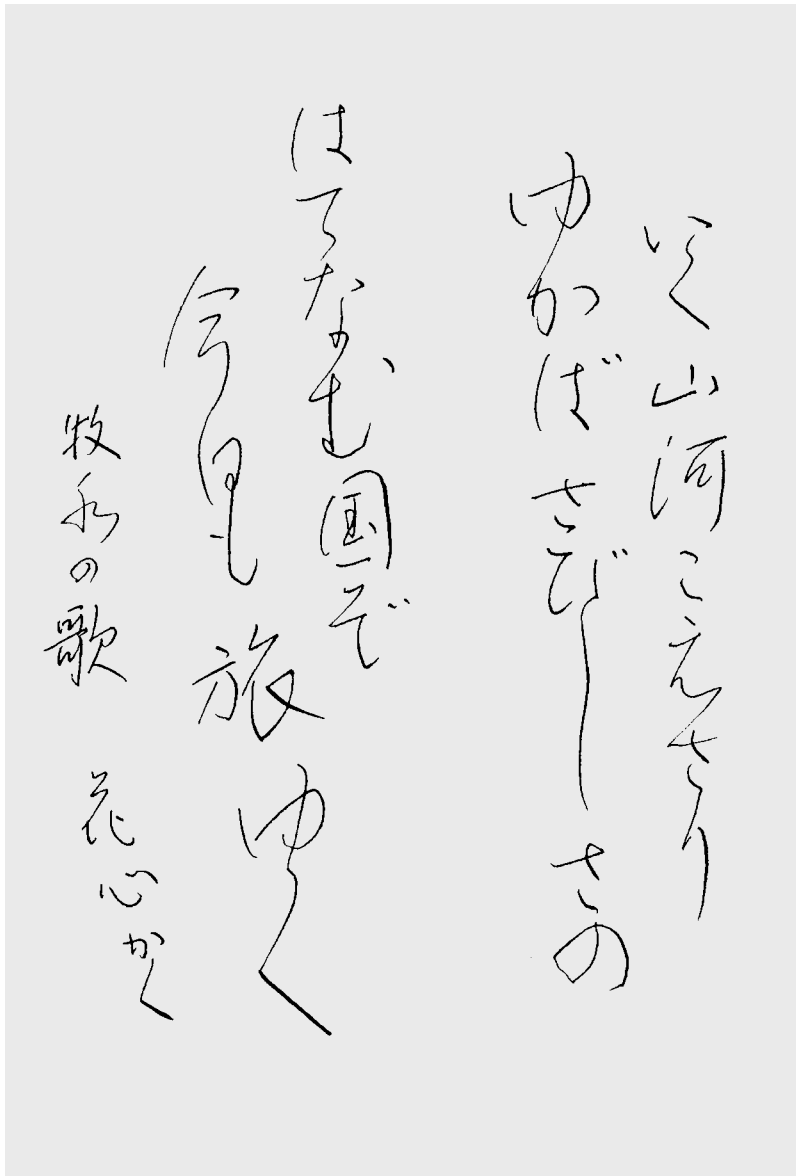 いく山河こえさり
ゆかばさびしさの
はてなむ国ぞ
今日も旅ゆく
牧水の歌 花心かく